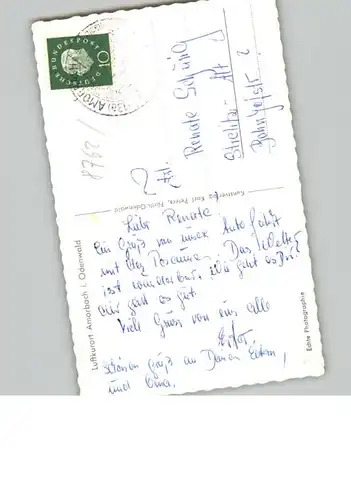 DEUTSCHE BUNDESPOST
10
8762/
Frl.
Renate
Bahnhofstr. 2
Kunstverlag Karl Peters, Fürth/Odenwald
Luftkurort Amorbach i. Odenwald
Echte Photographie
Liebe Renate
Ein Gruß von unser Autofahrt
mit den Das Wetter
ist wunderbar. Wie geht es Dir?
geht es gut.
Viel Grüsse von uns alle
Schönen Gruß an Deinen Eltern,
und Oma.